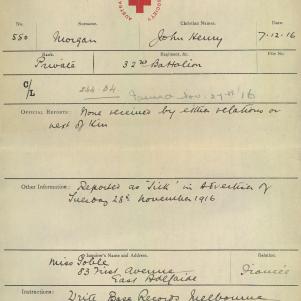 SOCIETY
No. Surname. Christian Names.
550 Morgan John Henry 7-12-16
Rank. Regiment, &c. File No.
Private 32nd Battalion
C/L 244.D4. Nov. 27th/16
OFFICIAL REPORTS: None received by either relations or
next of Kin
Other Information: Reported as "Sick" in Advertiser of
Tuesday 28th November 1916
Inquirer's Name and Address. Relation.
Miss Poble Fiancée
83 First Avenue
East Adelaide
Instructions: Write Base Records Melbourne